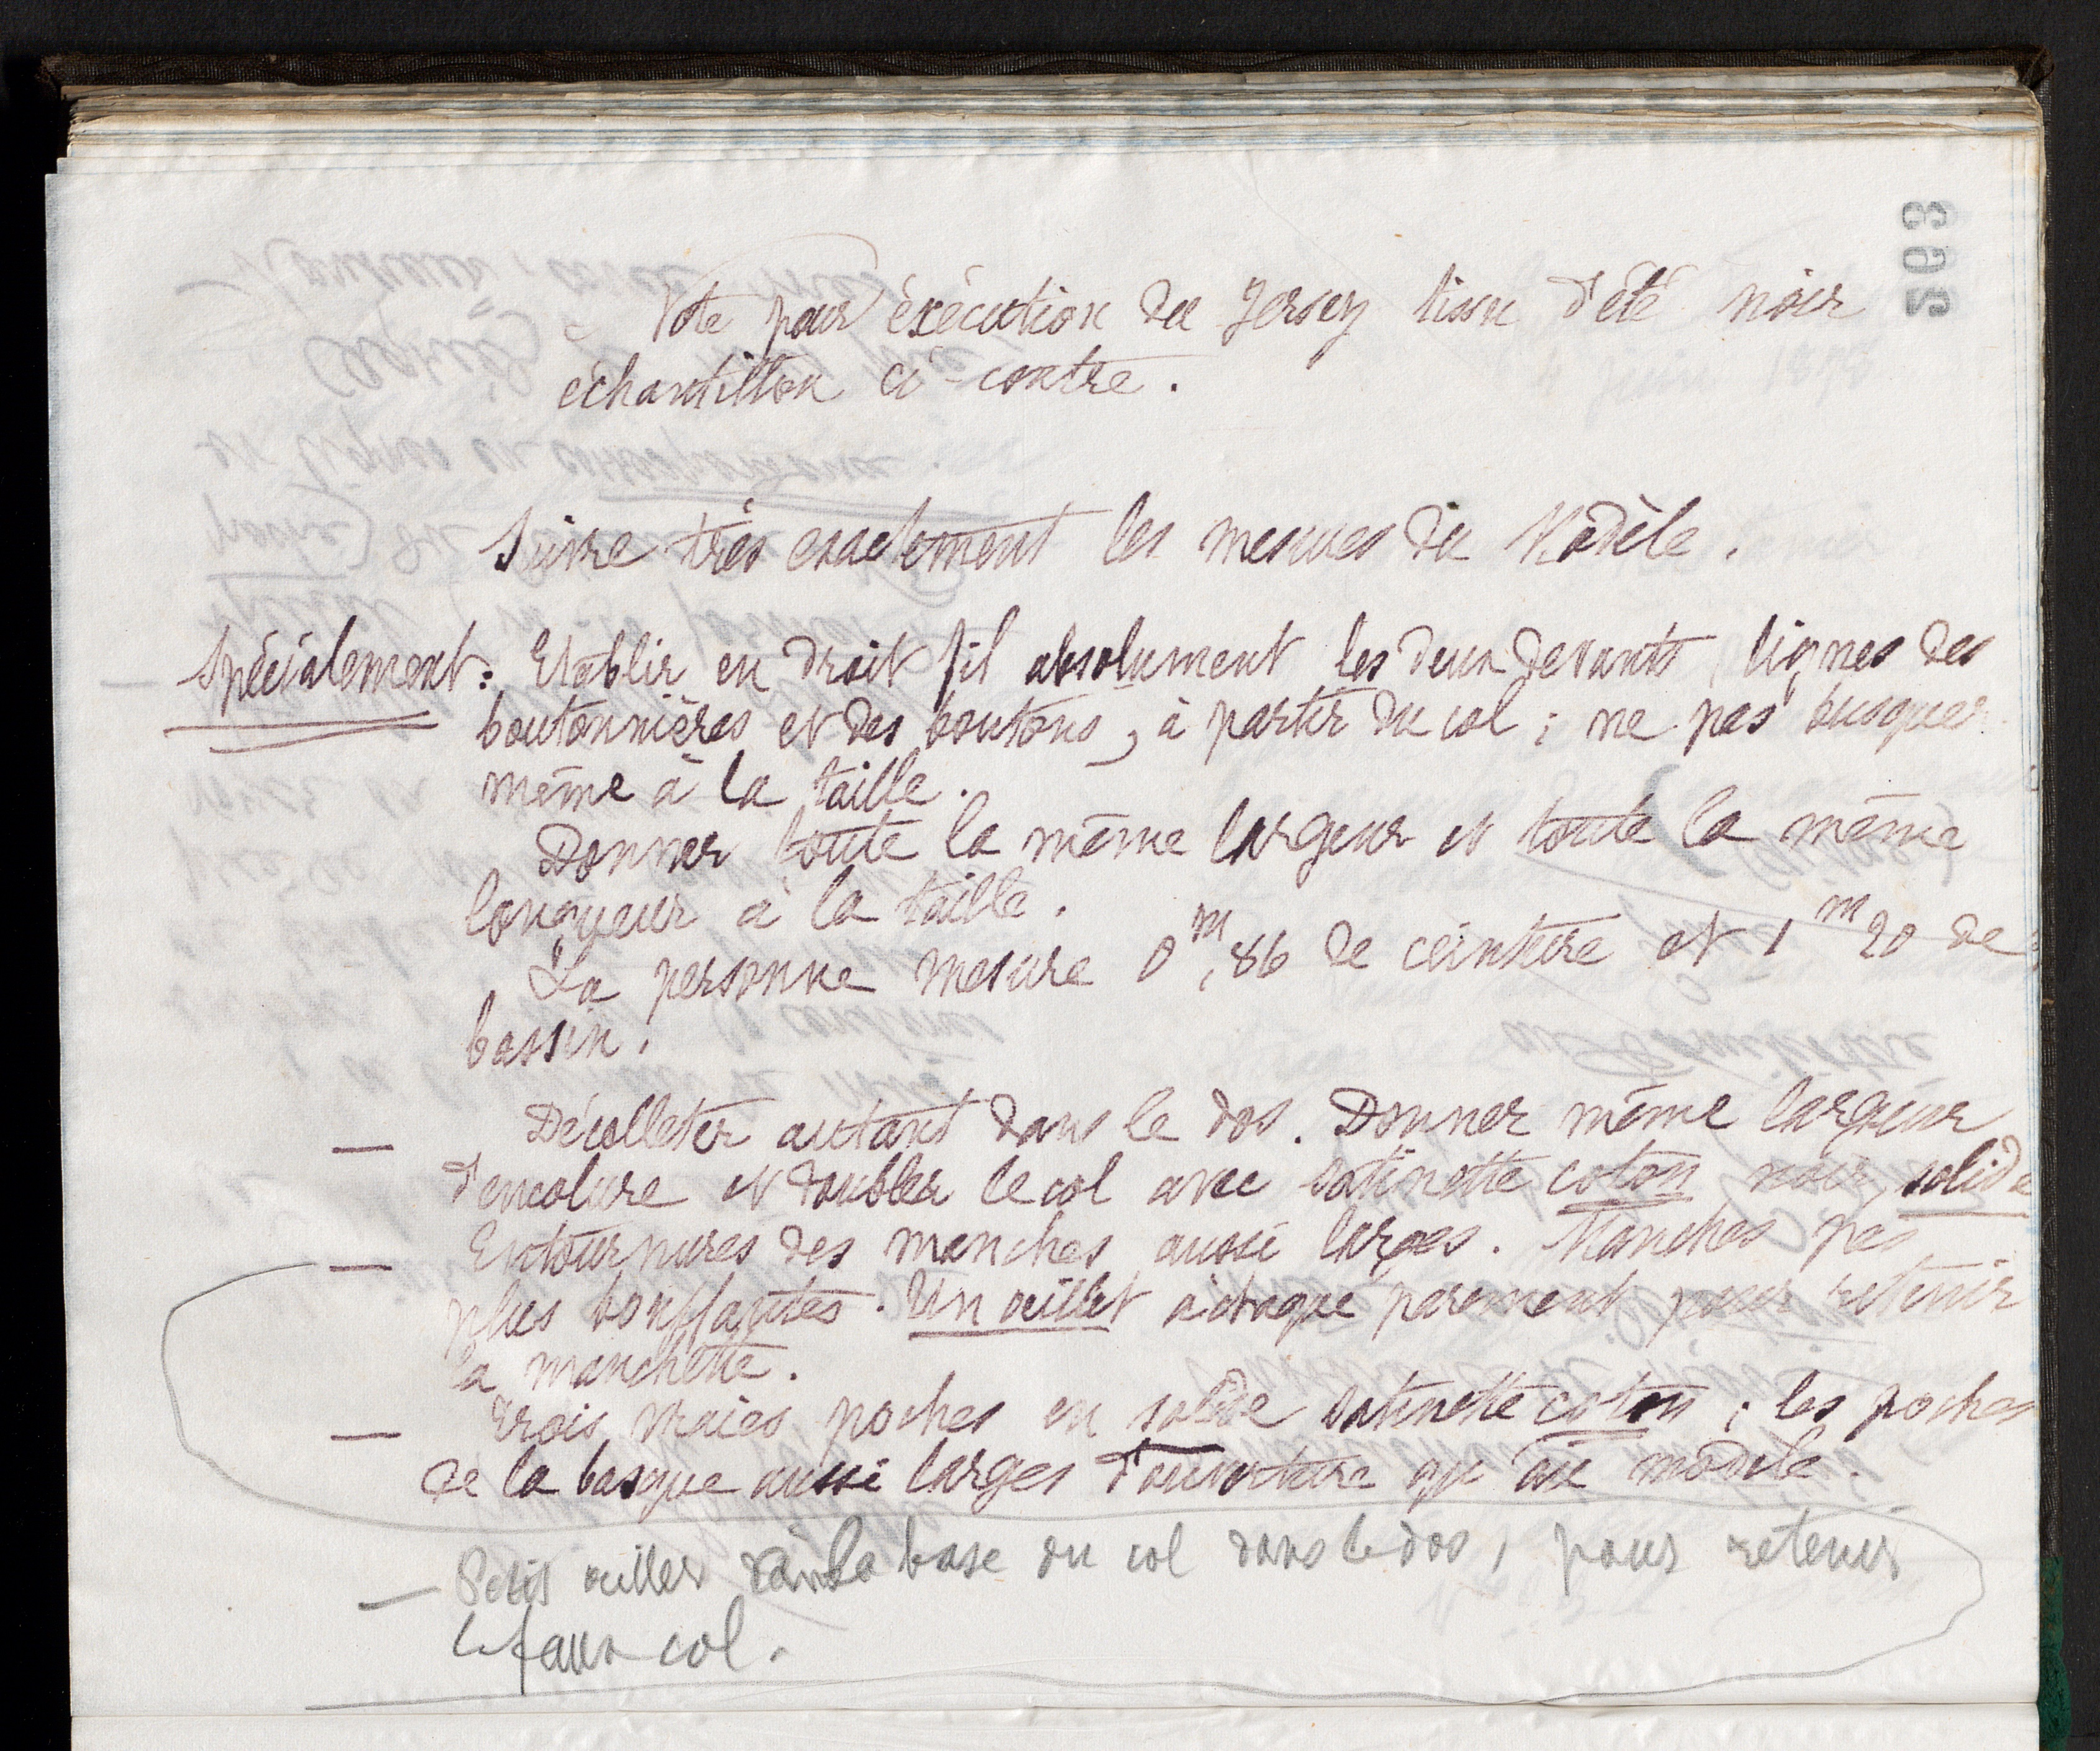 263
Note pour éxécution du Jersey tissu d'été noir
échantillon ci-contre.
Suivre très exactement les mesures du Modèle.
Spécialement: Etablir en droit fil absolument les deux devants, lignes des
boutonnières et des boutons, à partir du col ; ne pas busquer
même à la taille.
Donner toute la même largeur et toute la même
longueur à la taille.
La personne mesure 0m,86 de ceinture et 1m20 de
bassin.
— Décolleter autant dans le dos. Donner même largeur
d'encolure et doubler le col avec satinette coton noir, solide
— Entournures des manches aussi larges. Manches pas
plus bouffantes. Un œillet à chaque parement pour retenir
la manchette.
— Trois vraies poches en solide satinette coton ; les poches
de la basque aussi larges d'ouverture qu'au modèle.
— Petit œillet à la base du col dans le dos, pour retenir
le faux col.